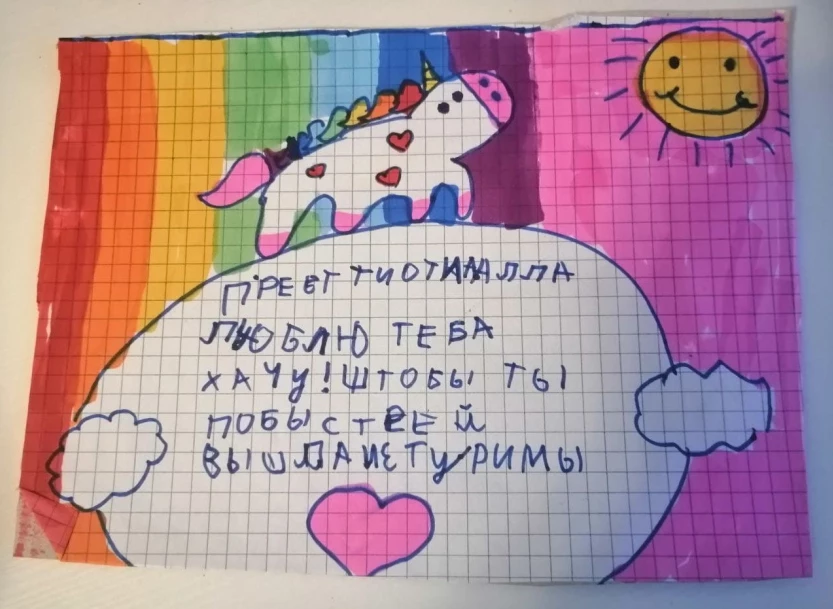 ПРЕЕТ ТИОТИАЛЛА
ЛЮБЛЮ ТЕБА
ХАЧУ! ШТОБЫ ТЫ
ПОБЫСТРЕЙ
ВЫШЛА ИСТУРИМЫ